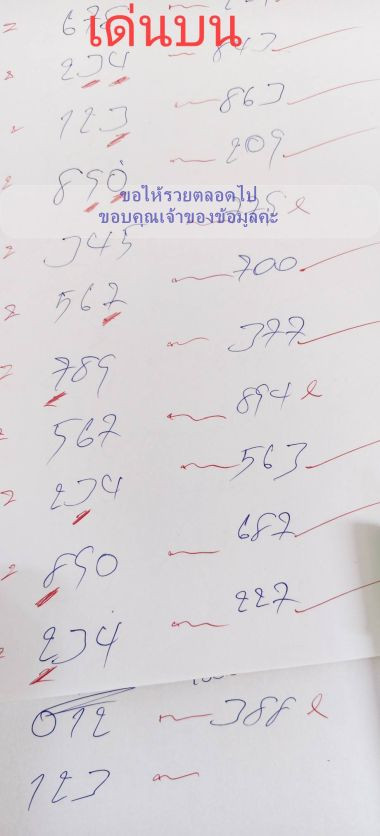 เด่นบน
678
234 843
123 863
890 209
ขอให้รวยตลอดไป
ขอบคุณเจ้าของข้อมูลค่ะ
345
700
567
377
789
894 ✗
567
563
234
687
890
227
234
012 388 ✗
123